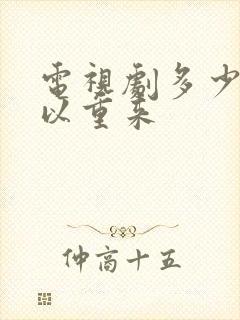 電視劇多少
以重来
仲高十五